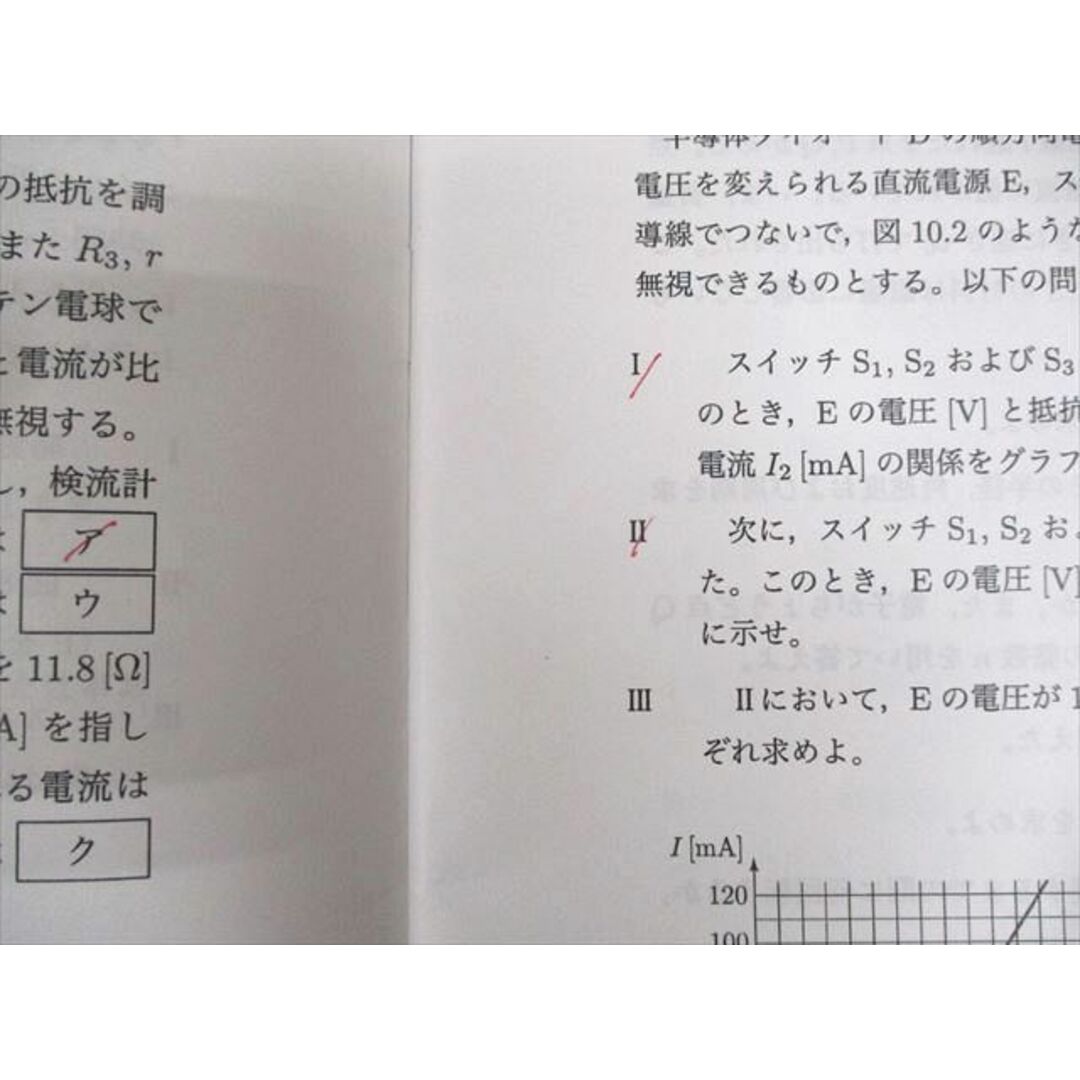 の抵抗を調
また R₃, r
テン電球で
と電流が比
無視する。
し，検流計
ア
ウ
を 11.8 [Ω]
A] を指し
る電流は
ク
半導体ダイオード D の順方向電
電圧を変えられる直流電源 E，ス
導線でつないで，図 10.2 のような
無視できるものとする。以下の問
I スイッチ S₁, S₂ および S₃
のとき，E の電圧 [V] と抵抗
電流 I₂ [mA] の関係をグラフ
II 次に，スイッチ S₁, S₂ およ
た。このとき，E の電圧 [V]
に示せ。
III II において，E の電圧が 1
ぞれ求めよ。
I [mA]
120
100